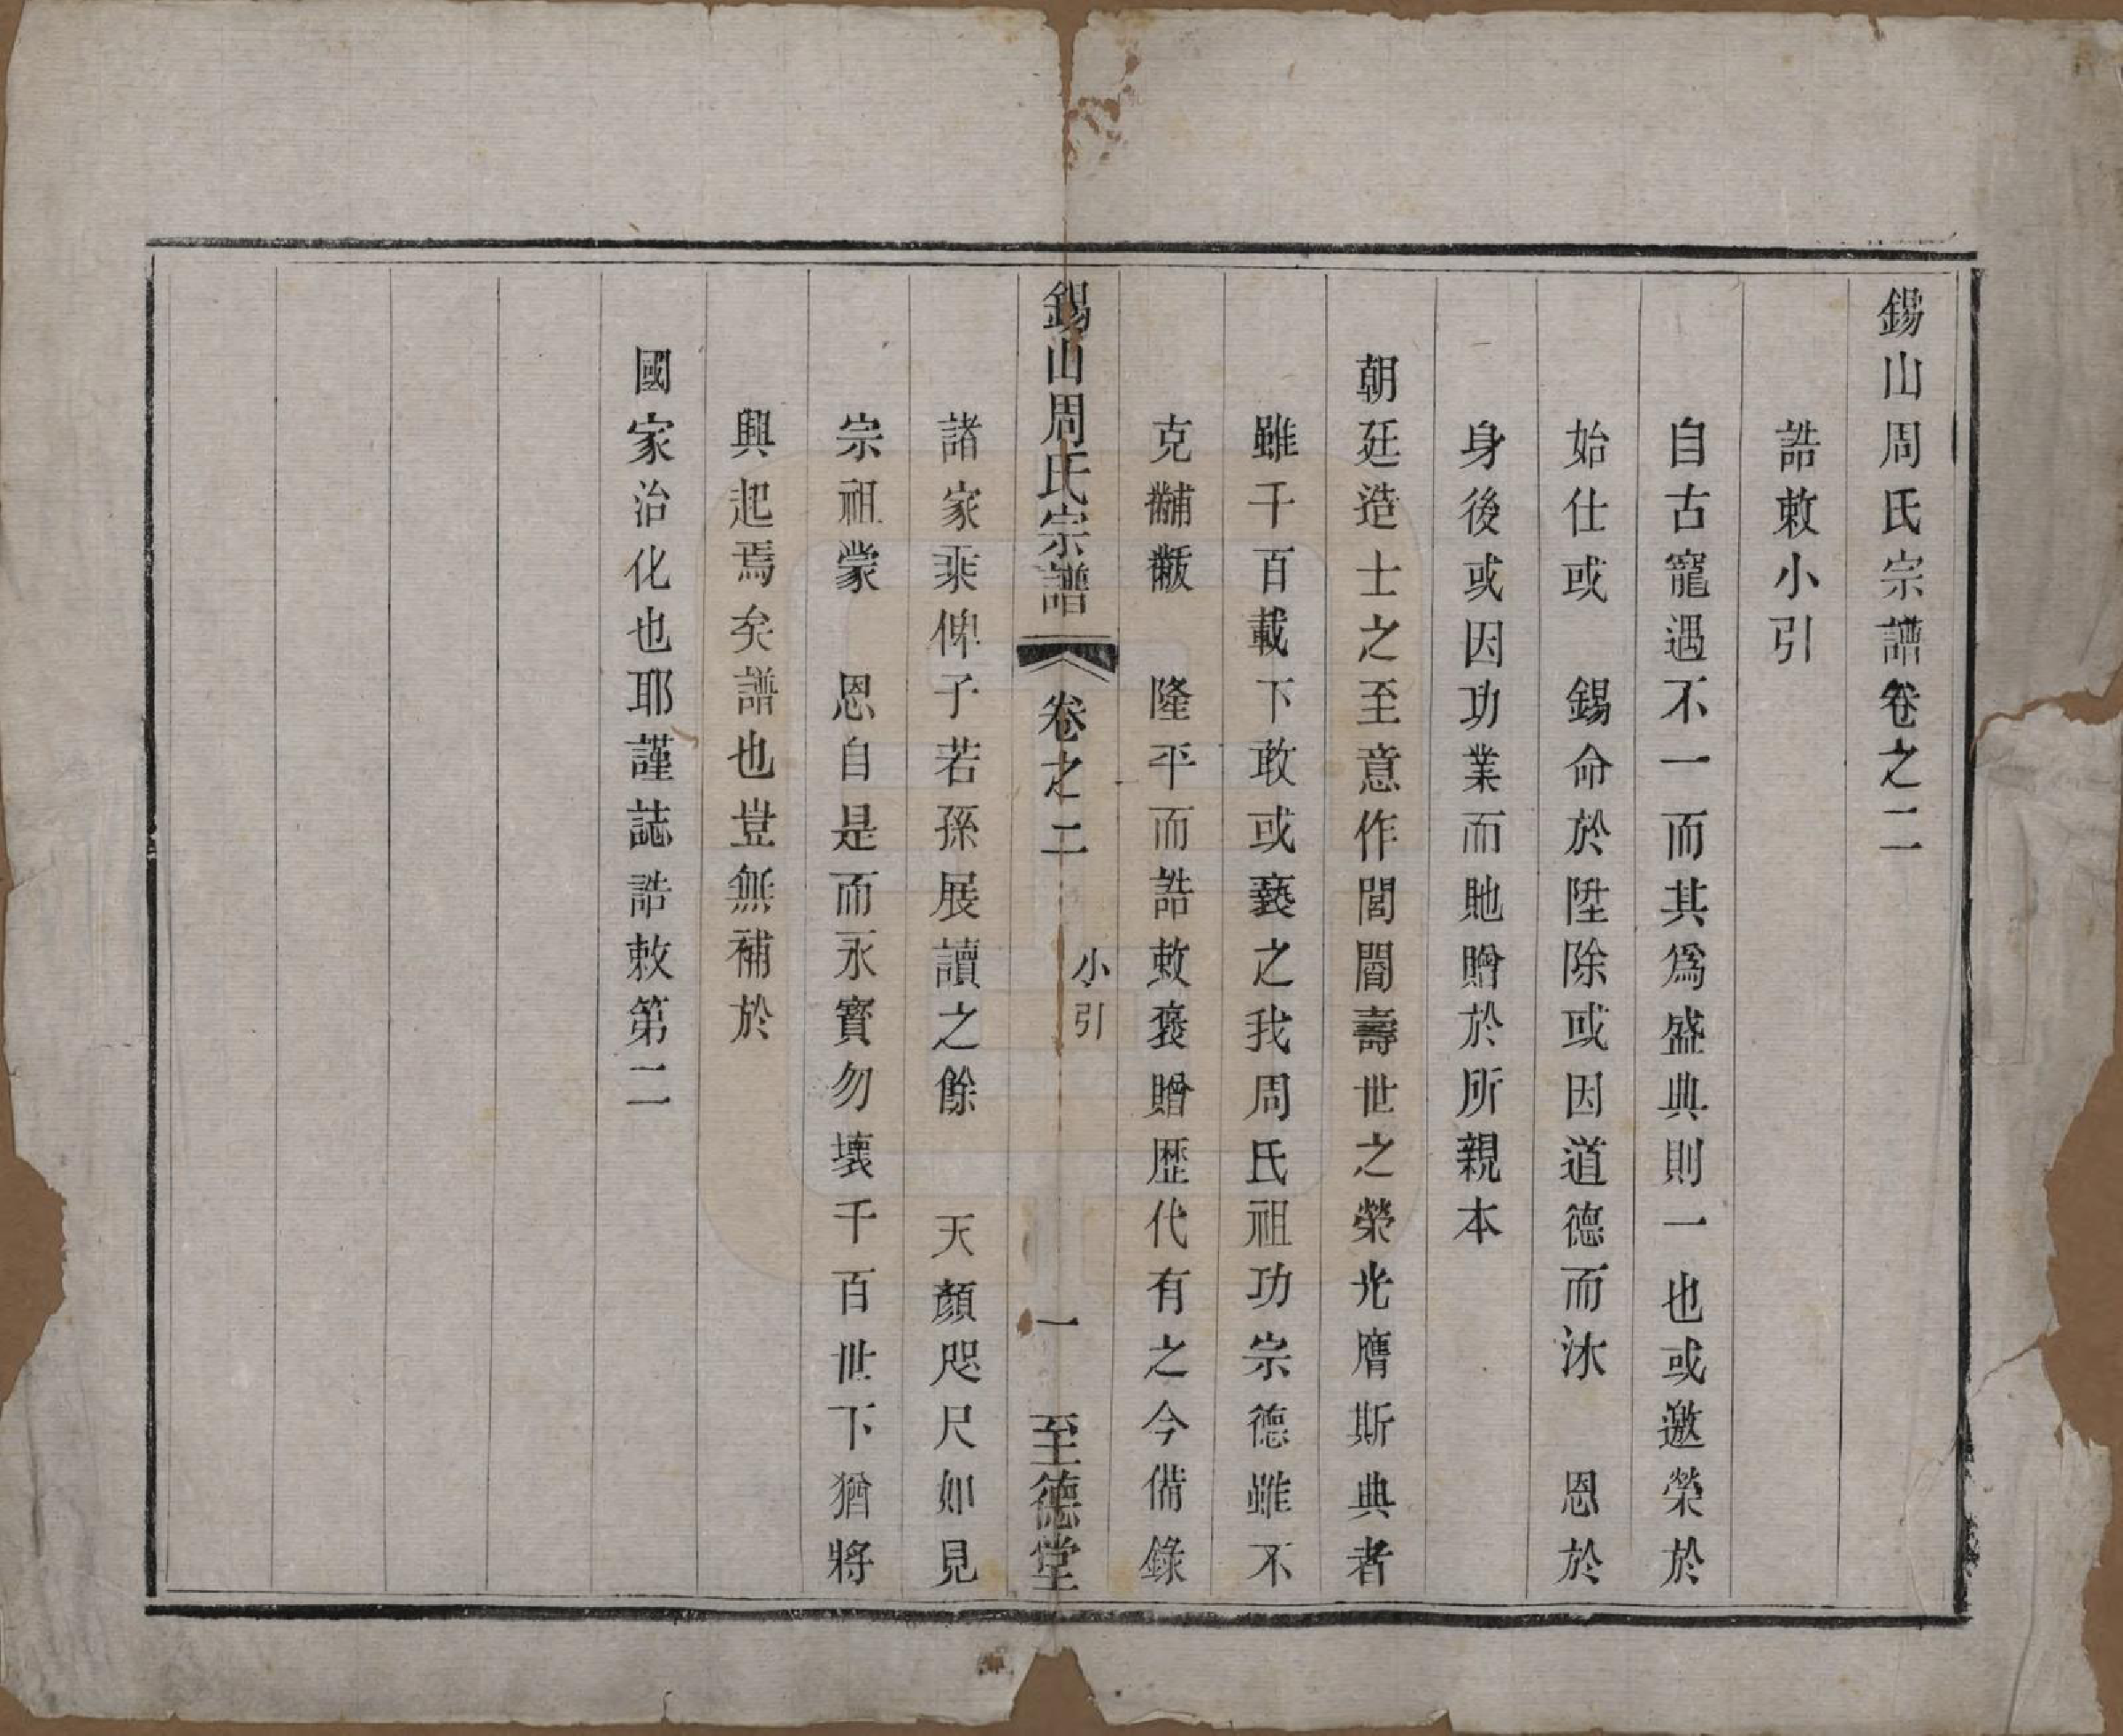 錫山周氏宗譜卷之二
誥敕小引
自古寵遇不一而其爲盛典則一也或邀榮於
始仕或　錫命於陞除或因道德而沐　恩於
身後或因功業而貤贈於所親本
朝廷造士之至意作閭閻壽世之榮光膺斯典者
雖千百載下敢或褻之我周氏祖功宗德雖不
克黼黻　隆平而誥敕褒贈歷代有之今備錄
錫山周氏宗譜　卷之二　小引　一　至德堂
諸家乘俾子若孫展讀之餘　天顏咫尺如見
宗祖蒙　恩自是而永寶勿壞千百世下猶將
興起焉矣譜也豈無補於
國家治化也耶謹誌誥敕第二